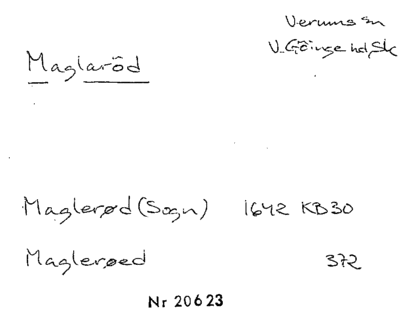 Verums sn
V. Göinge hd, Sk
Maglaröd
Maglerød (Sogn) 1642 KB30
Maglerøed 372
Nr 20623